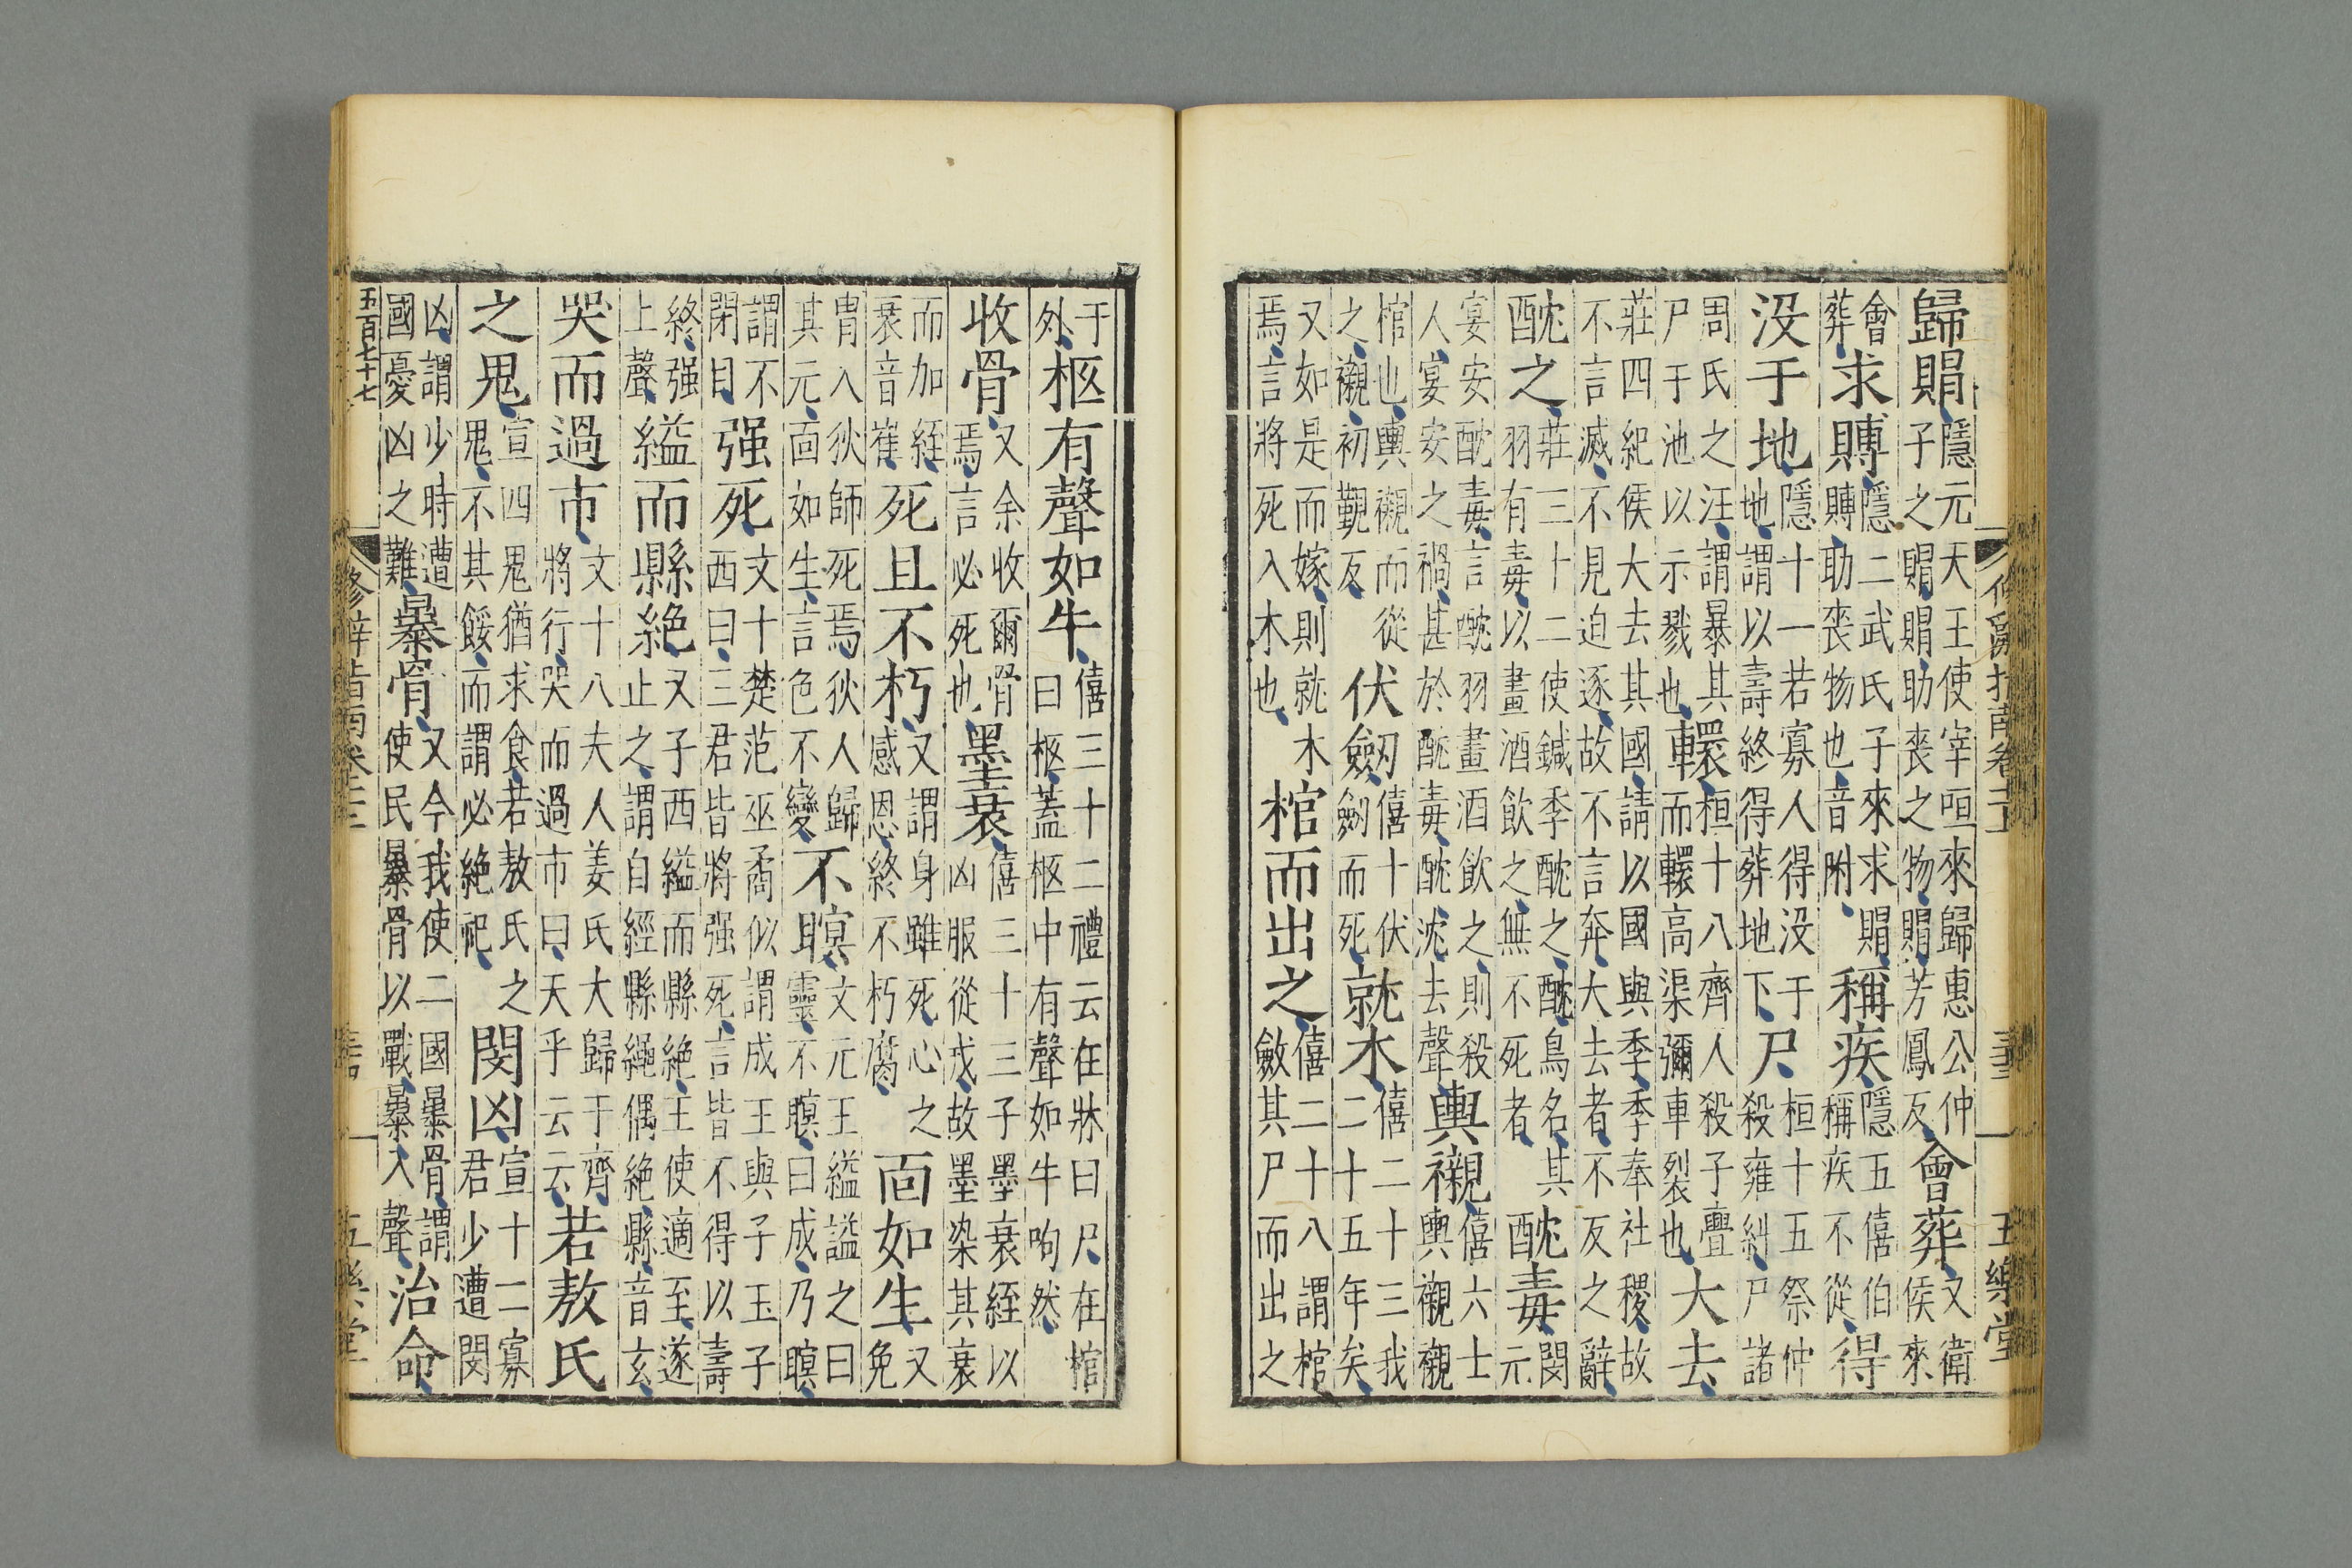 修辭指南卷 五樂堂
歸賵隱元天王使宰咺來歸惠公仲子之賵賵助喪之物賵芳鳳反會葬又衛侯來
會葬求賻隱二武氏子來求賵賻助喪物也音附稱疾隱五僖伯稱疾不從得
没于地隱十一若寡人得没于地謂以壽終得葬地下尸桓十五祭仲殺雍糾尸諸
周氏之汪謂暴其尸于池以示戮也轘桓十八齊人殺子亹而轘高渠彌車裂也大去
莊四紀侯大去其國請以國與季季奉社稷故不言滅不見迫逐故不言奔大去者不反之辭
酖之莊三十二使鍼季酖之酖鳥名其羽有毒以畫酒飲之無不死者酖毒閔元
宴安酖毒言酖羽畫酒飲之則殺人宴安之禍甚於酖毒酖沈去聲輿櫬僖六士輿櫬櫬
棺也輿櫬而從之櫬初覲反伏劔僖十伏劔而死就木僖二十三我二十五年矣
又如是而嫁則就木焉言將死入木也棺而出之僖二十八謂棺斂其尸而出之
于外柩有聲如牛僖三十二禮云在牀曰尸在棺曰柩蓋柩中有聲如牛呴然
收骨又余收爾骨焉言必死也墨衰僖三十三子墨衰絰以凶服從戎故墨染其衰
而加絰衰音崔死且不朽又謂身雖死心之感恩終不朽腐面如生又免
胄入狄師死焉狄人歸其元面如生言色不變不瞑文元王縊謚之曰靈不瞑曰成乃瞑
謂不閉目强死文十楚范巫矞似謂成王與子玉子西曰三君皆將强死言皆不得以壽
終强上聲縊而縣絶又子西縊而縣絶王使適至遂止之謂自經縣繩偶絶縣音玄
哭而過市文十八夫人姜氏大歸于齊將行哭而過市曰天乎云云若敖氏
之鬼宣四鬼猶求食若敖氏之鬼不其餒而謂必絶祀閔凶宣十二寡君少遭閔
凶謂少時遭國憂凶之難暴骨又今我使二國暴骨謂使民暴骨以戰暴入聲治命
五百七十七 修辭指南卷 五樂堂